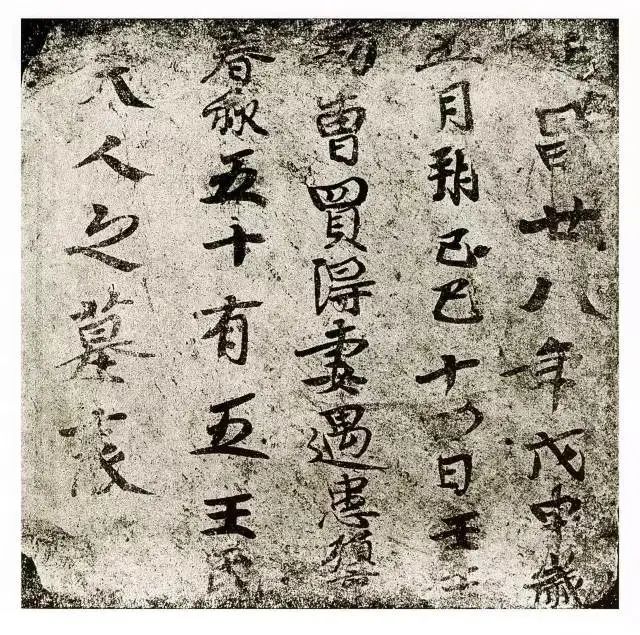 延昌廿八年戊申歲
五月朔己巳十四日壬午
曹買得妻遇患殞
春秋五十有五王氏
夫人之墓表